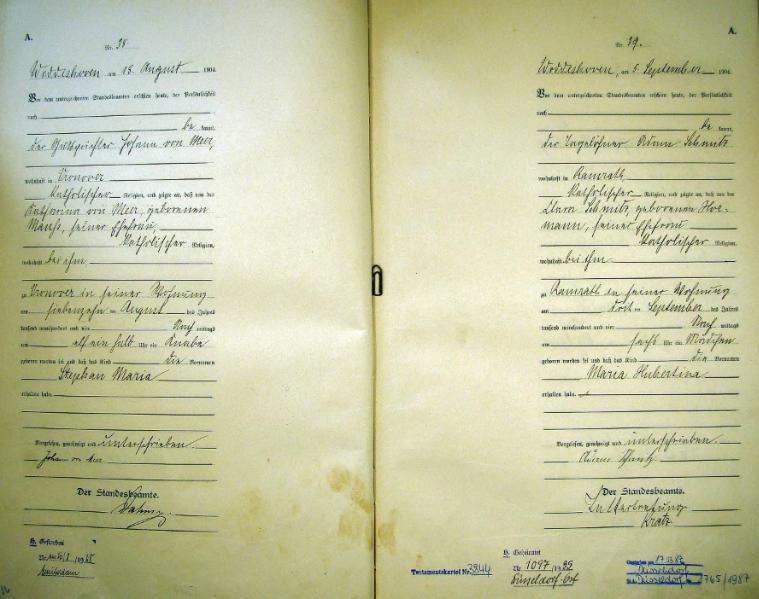 A.
Nr. 38
am 18. August 1904.
Vor dem unterzeichneten Standesbeamten erschien heute, der Persönlichkeit
nach
be kannt,
der Gutspächter Johann von Meer,
wohnhaft in Vronover
katholischer Religion, und zeigte an, daß von der
Katharina von Meer, geborenen
seiner Ehefrau,
katholischer Religion,
wohnhaft bei ihm
zu Vronover in seiner Wohnung
am siebenzehn ten August des Jahres
tausend neunhundert und vier Nach mittags
um elf ein halb Uhr ein Knabe
geboren worden sei und daß das Kind die Vornamen
Stephan Maria
erhalten habe.
Vorgelesen, genehmigt und unterschrieben
Johann von Meer
Der Standesbeamte.
A.
Nr. 39.
am 5. September 1904.
Vor dem unterzeichneten Standesbeamten erschien heute, der Persönlichkeit
nach
be kannt,
der Tagelöhner Adam Schmitz
wohnhaft in Ramrath
katholischer Religion, und zeigte an, daß von der
Schmitz, geborenen
mann, seiner Ehefrau
katholischer Religion,
wohnhaft bei ihm
zu Ramrath in seiner Wohnung
am September des Jahres
tausend neunhundert und vier Nach mittags
um sechs Uhr ein Mädchen
geboren worden sei und daß das Kind die Vornamen
Maria Hubertina
erhalten habe.
Vorgelesen, genehmigt und unterschrieben.
Adam Schmitz
Der Standesbeamte.
In Vertretung
Kratz
Testamentskartei Nr. 3844
Nr. 1097
Düsseldorf-Ost
17.12.87
Düsseldorf
Düsseldorf 2765/1987